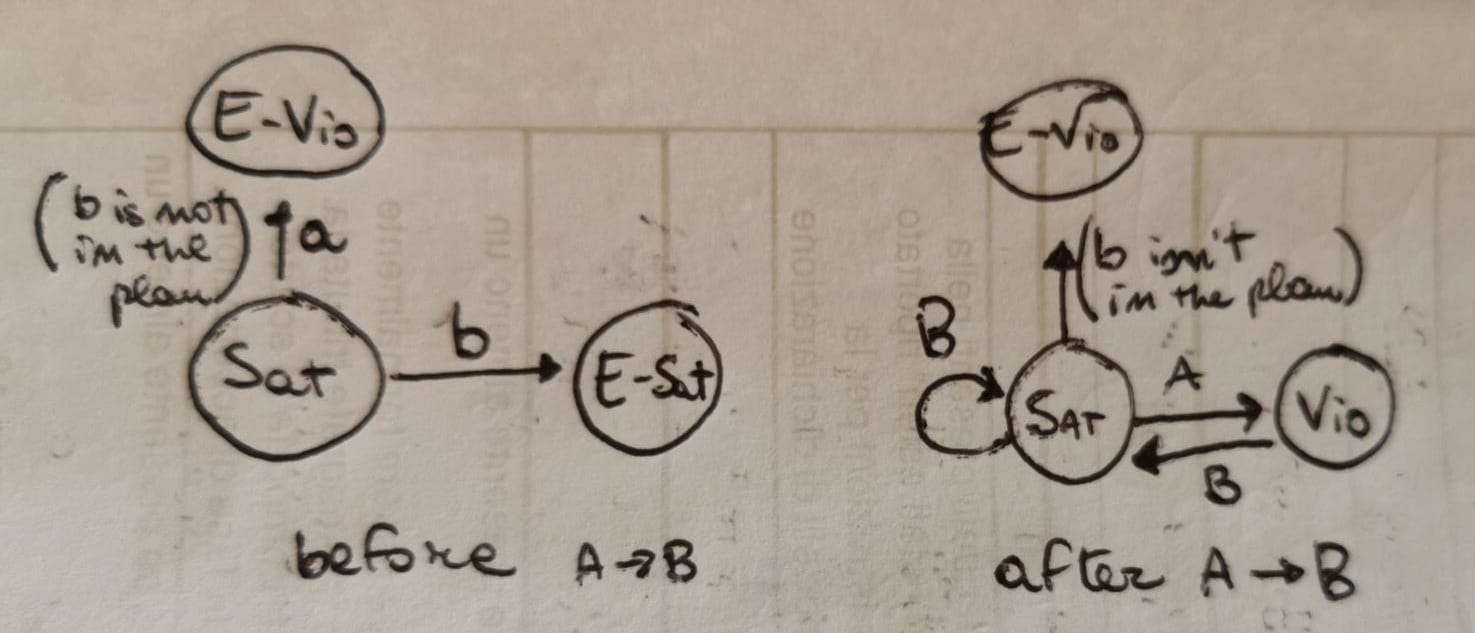 E-Vio
(b is not
in the
plan)
a
Sat
b
E-Sat
before A→B
E-Vio
(b isn't
in the plan)
B
SAT
A
Vio
B
after A→B